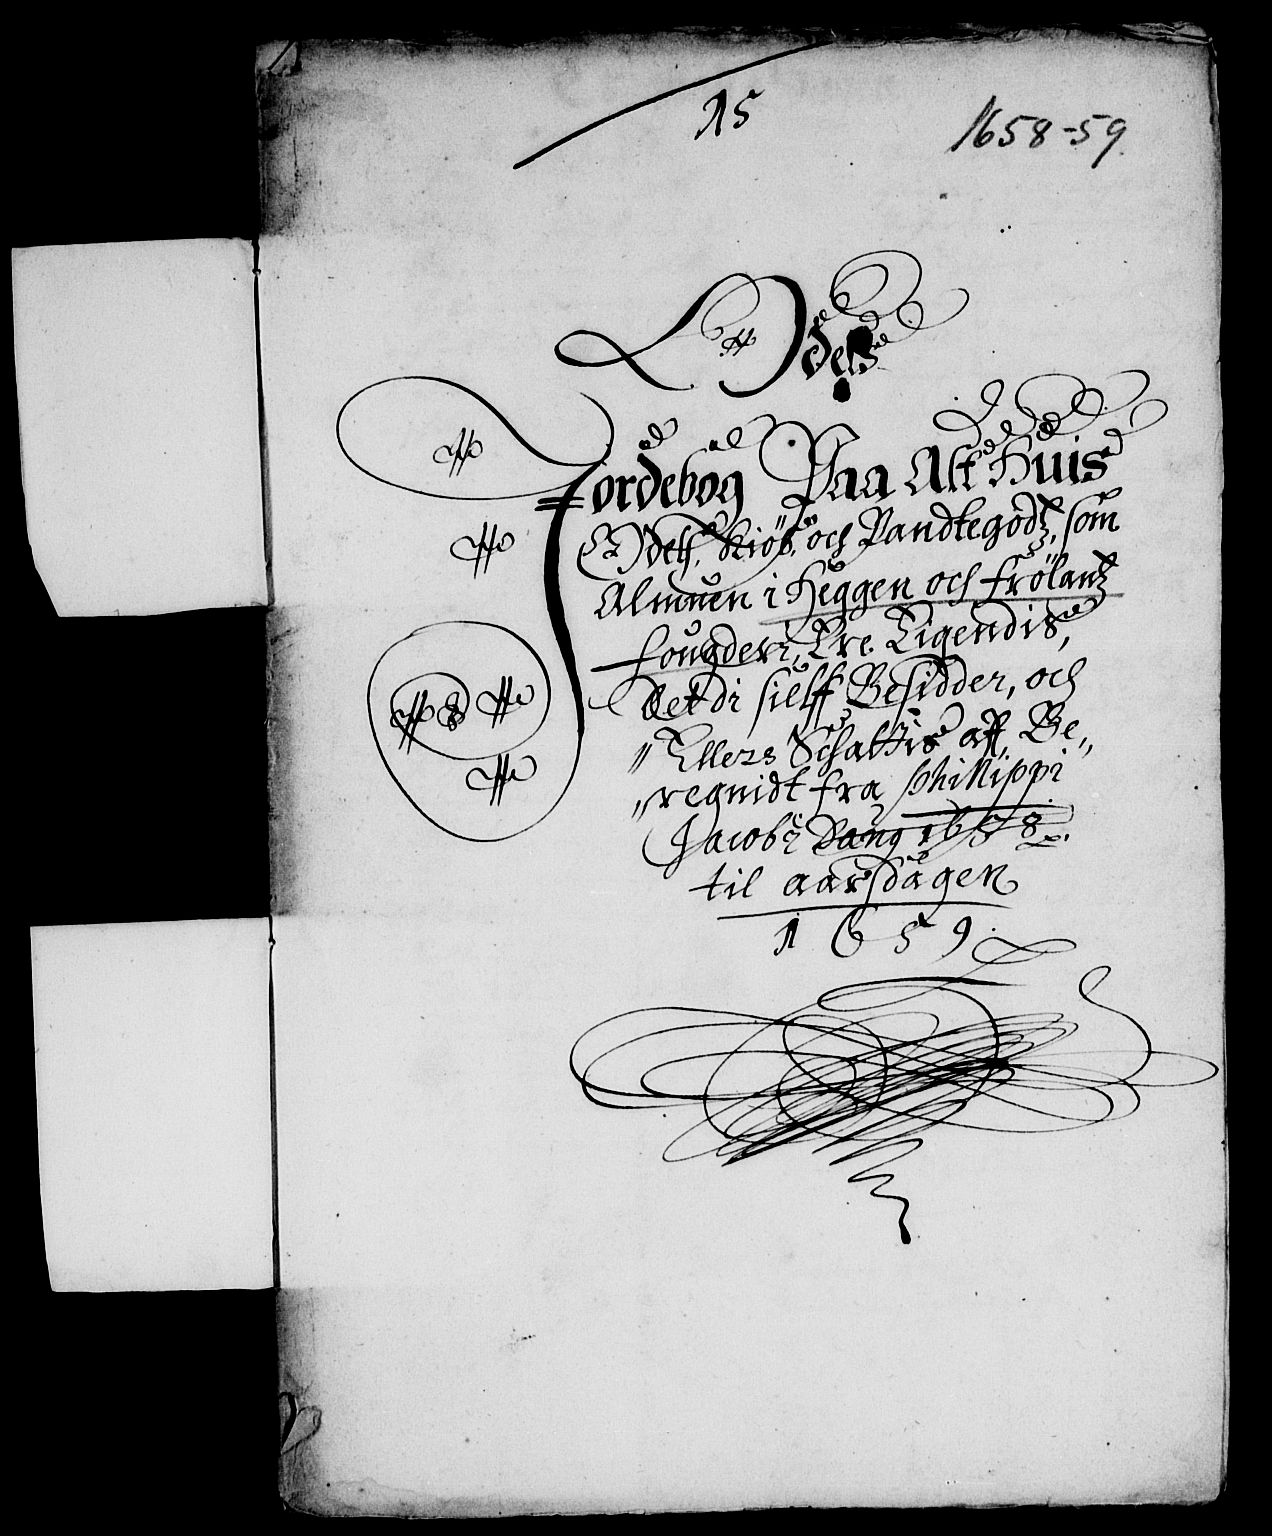 15
1658-59
Odels
Jordebog Paa Alt Huis
Odels, Kiøb, och Pandtegodz, som
Almuen i Heggen och Frölandz
fougderi, Ere Eigendis,
Det di sielff Besidder, och
"Ellers Schattis aff, Be„
„regnidt fra Philippi
Jacobi Dang 1658
til aarsdagen
1659.